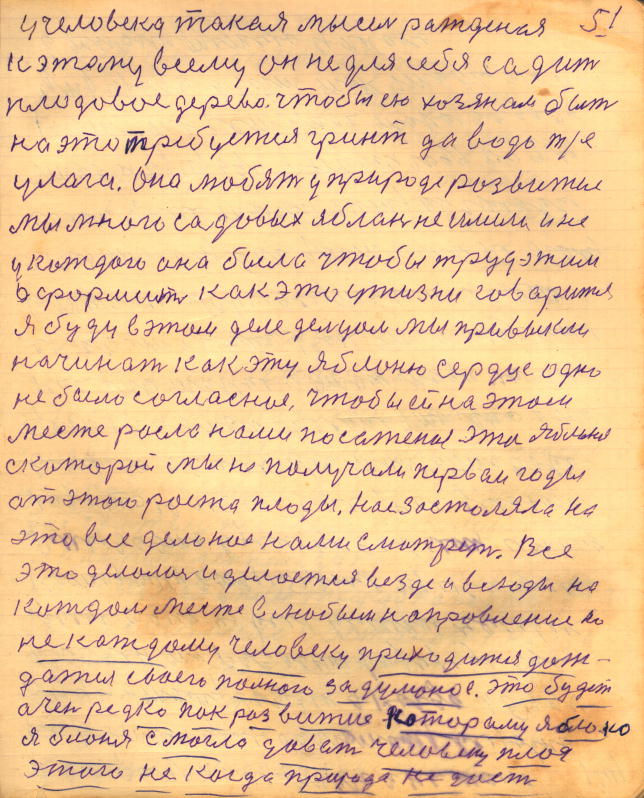 51
у человека такая мысль ражденая
к этаму всему он не для себя садит
плодовое дерево. чтобы ею хозянам быт
на это требуется гринт да водь т/е
улага. Она любят у природе развитие
мы много садовых яблань не имили и не
у каждого она была чтобы труд этим
оформит как это у жизни говарится
я буду в этом деле делцом мы привыкли
начинат как эту яблоню сердце одно
не было согласное, чтобы ей на этом
месте росла нами посажения эта яблыня
с каторой мы не получали первыи годы
от этого роста плоды. Нас застоляла на
это все делоное нами смотрет. Все
это делолос и делоется везде и всюды на
каждом месте в любым направление но
не каждому человеку приходится дож-
датся своего полного задуманое. это будет
очен редко пок развитие которому яблоко
яблоня смогла дават человеку плод
этого не когда природа не даст